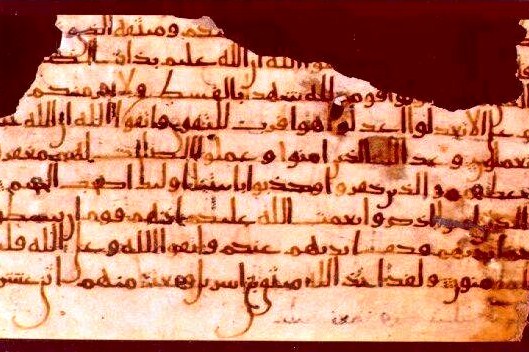 عليكم وميثقه الذي
الله ان الله عليم بذات الصد
قومين لله شهدا بالقسط ولا يجرمنكم
على الا تعدلوا اعدلوا هو اقرب للتقوى واتقوا الله ان الله
تعملون وعد الله الذين امنوا وعملوا الصلحت لهم مغفر
عظيم والذين كفروا وكذبوا بايتنا اوليك اصحب الجحيم
اذكروا نعمت الله عليكم اذ هم قوم ان يبسطو
ايديهم فكف ايديهم عنكم واتقوا الله وعلى الله فليـ
المومنون ولقد اخذ الله ميثق بني اسريل وبعثنا منهم اثنى عشر